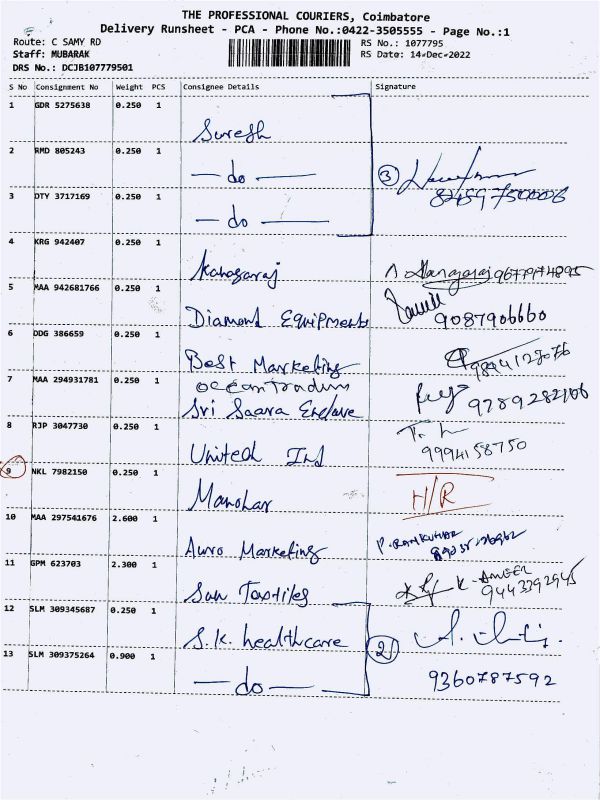 THE PROFESSIONAL COURIERS, Coimbatore
Delivery Runsheet - PCA - Phone No.:0422-3505555 - Page No.:1
Route: C SAMY RD RS No.: 1077795
Staff: MUBARAK RS Date: 14-Dec-2022
DRS No.: DCJB107779501
S No Consignment No Weight PCS Consignee Details Signature
1 GDR 5275638 0.250 1
Suresh
2 RMD 805243 0.250 1
— do —
3
3 DTY 3717169 0.250 1
— do —
4 KRG 942407 0.250 1
Kanagaraj
5 MAA 942681766 0.250 1
Diamond Equipments 9087906660
6 DDG 386659 0.250 1
Best Marketing
7 MAA 294931781 0.250 1
Sri Saara Enclave
8 RJP 3047730 0.250 1
United Ind 9994158750
9 NKL 7982150 0.250 1
Manohar H/R
10 MAA 297541676 2.600 1
Auro Marketing P. RAMKUMAR
11 GPM 623703 2.300 1
9443392945
12 SLM 309345687 0.250 1
S.K. healthcare 2
13 SLM 309375264 0.900 1
— do — 9360787592